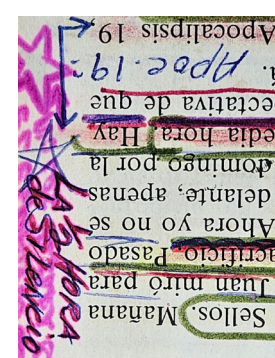 Sellos. Mañana
Juan miró para
acrificio. Pasado
Ahora yo no se
delante, apenas
domingo por la
edia hora. Hay
ectativa de que
Apoc. 19:
Apocalipsis 19,
LA ½ HORA
de SILENCIO